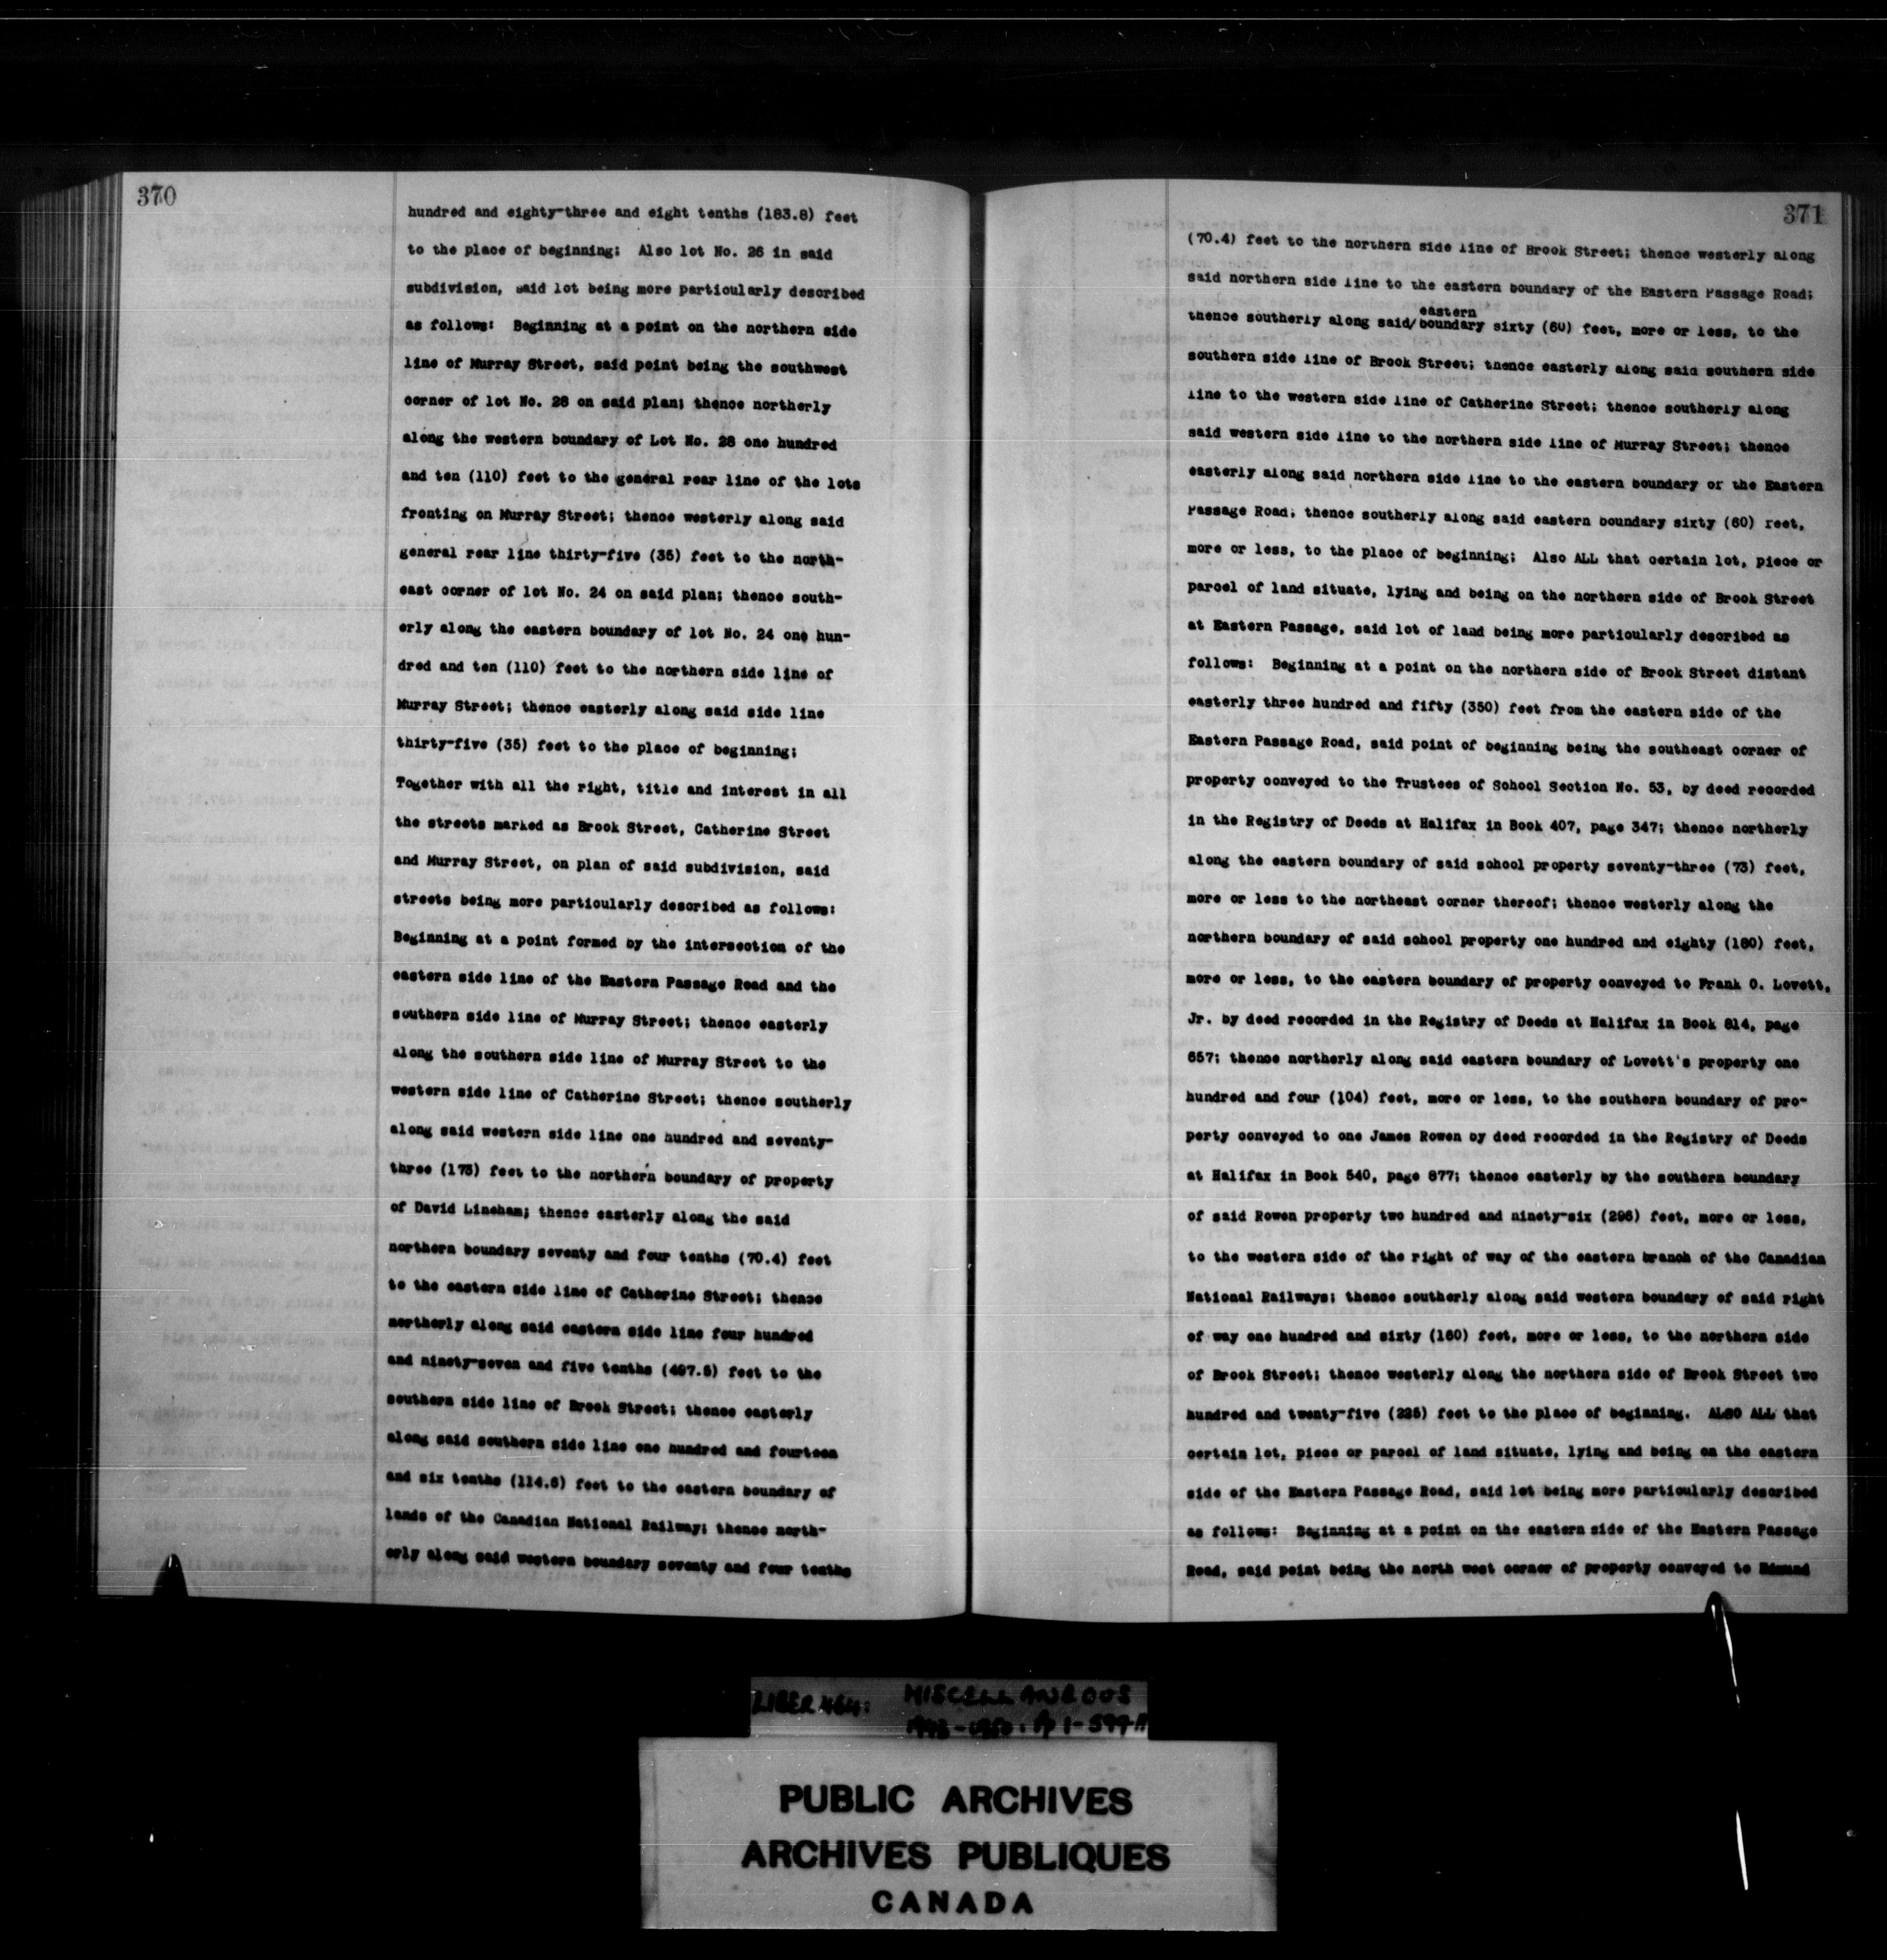 370
hundred and eighty-three and eight tenths (183.8) feet
to the place of beginning; Also lot No. 26 in said
subdivision, said lot being more particularly described
as follows: Beginning at a point on the northern side
line of Murray Street, said point being the southwest
corner of lot No. 28 on said plan; thence northerly
along the western boundary of Lot No. 28 one hundred
and ten (110) feet to the general rear line of the lots
fronting on Murray Street; thence westerly along said
general rear line thirty-five (35) feet to the north-
east corner of lot No. 24 on said plan; thence south-
erly along the eastern boundary of lot No. 24 one hun-
dred and ten (110) feet to the northern side line of
Murray Street; thence easterly along said side line
thirty-five (35) feet to the place of beginning;
Together with all the right, title and interest in all
the streets marked as Brook Street, Catherine Street
and Murray Street, on plan of said subdivision, said
streets being more particularly described as follows:
Beginning at a point formed by the intersection of the
eastern side line of the Eastern Passage Road and the
southern side line of Murray Street; thence easterly
along the southern side line of Murray Street to the
western side line of Catherine Street; thence southerly
along said western side line one hundred and seventy-
three (173) feet to the northern boundary of property
of David Lineham; thence easterly along the said
northern boundary seventy and four tenths (70.4) feet
to the eastern side line of Catherine Street; thence
northerly along said eastern side line four hundred
and ninety-seven and five tenths (497.5) feet to the
southern side line of Brook Street; thence easterly
along said southern side line one hundred and fourteen
and six tenths (114.6) feet to the eastern boundary of
lands of the Canadian National Railway; thence north-
erly along said western boundary seventy and four tenths
371
(70.4) feet to the northern side line of Brook Street; thence westerly along
said northern side line to the eastern boundary of the Eastern Passage Road;
eastern
thence southerly along said/boundary sixty (60) feet, more or less, to the
southern side line of Brook Street; thence easterly along said southern side
line to the western side line of Catherine Street; thence southerly along
said western side line to the northern side line of Murray Street; thence
easterly along said northern side line to the eastern boundary of the Eastern
Passage Road; thence southerly along said eastern boundary sixty (60) feet,
more or less, to the place of beginning; Also ALL that certain lot, piece or
parcel of land situate, lying and being on the northern side of Brook Street
at Eastern Passage, said lot of land being more particularly described as
follows: Beginning at a point on the northern side of Brook Street distant
easterly three hundred and fifty (350) feet from the eastern side of the
Eastern Passage Road, said point of beginning being the southeast corner of
property conveyed to the Trustees of School Section No. 53, by deed recorded
in the Registry of Deeds at Halifax in Book 407, page 347; thence northerly
along the eastern boundary of said school property seventy-three (73) feet,
more or less to the northeast corner thereof; thence westerly along the
northern boundary of said school property one hundred and eighty (180) feet,
more or less, to the eastern boundary of property conveyed to Frank O. Lovett,
Jr. by deed recorded in the Registry of Deeds at Halifax in Book 814, page
657; thence northerly along said eastern boundary of Lovett's property one
hundred and four (104) feet, more or less, to the southern boundary of pro-
perty conveyed to one James Rowen by deed recorded in the Registry of Deeds
at Halifax in Book 540, page 877; thence easterly by the southern boundary
of said Rowen property two hundred and ninety-six (296) feet, more or less,
to the western side of the right of way of the eastern branch of the Canadian
National Railways; thence southerly along said western boundary of said right
of way one hundred and sixty (160) feet, more or less, to the northern side
of Brook Street; thence westerly along the northern side of Brook Street two
hundred and twenty-five (225) feet to the place of beginning. ALSO ALL that
certain lot, piece or parcel of land situate, lying and being on the eastern
side of the Eastern Passage Road, said lot being more particularly described
as follows: Beginning at a point on the eastern side of the Eastern Passage
Road, said point being the north west corner of property conveyed to Edmund
LIBER 464: MISCELLANEOUS
PUBLIC ARCHIVES
ARCHIVES PUBLIQUES
CANADA